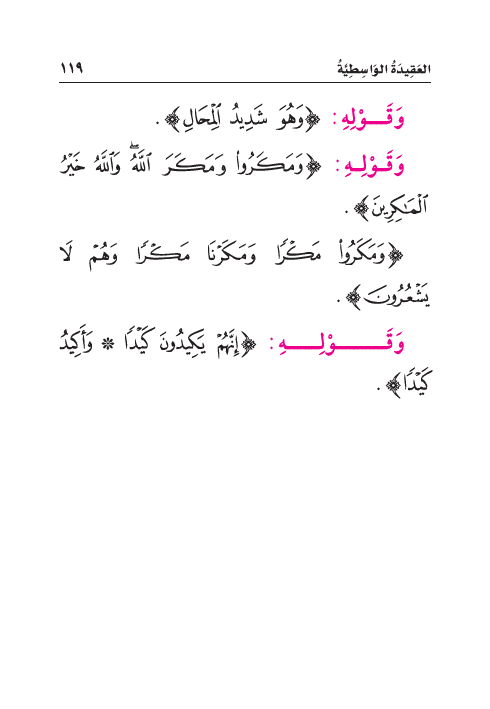 العَقِيدَةُ الوَاسِطِيَّةُ ١١٩
وَقَـوْلِهِ: ﴿وَهُوَ شَدِيدُ ٱلْمِحَالِ﴾.
وَقَـوْلِـهِ: ﴿وَمَكَرُوا۟ وَمَكَرَ ٱللَّهُ ۖ وَٱللَّهُ خَيْرُ
ٱلْمَـٰكِرِينَ﴾.
﴿وَمَكَرُوا۟ مَكْرًا وَمَكَرْنَا مَكْرًا وَهُمْ لَا
يَشْعُرُونَ﴾.
وَقَــوْلِــهِ: ﴿إِنَّهُمْ يَكِيدُونَ كَيْدًا * وَأَكِيدُ
كَيْدًا﴾.